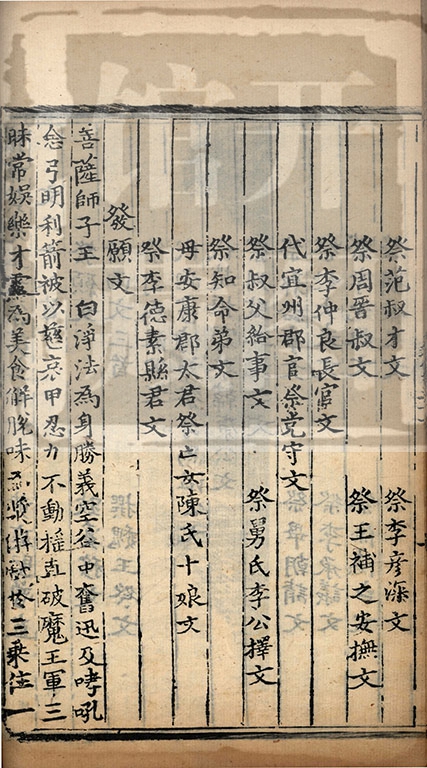 祭范叔才文 祭李彦深文
祭周晋叔文 祭王補之安撫文
祭李仲良長官文
代宜州郡官祭党守文
祭叔父給事文 祭舅氏李公擇文
祭知命弟文
母安康郡太君祭亡女陳氏十娘文
祭李德素縣君文
發願文
菩薩師子王白淨法為身勝義空谷中奮迅及哮吼
念弓明利箭被以慈哀甲忍力不動揺直破魔王軍三
昧常娛樂甘露為美食解脫味為漿游戲於三乘住一